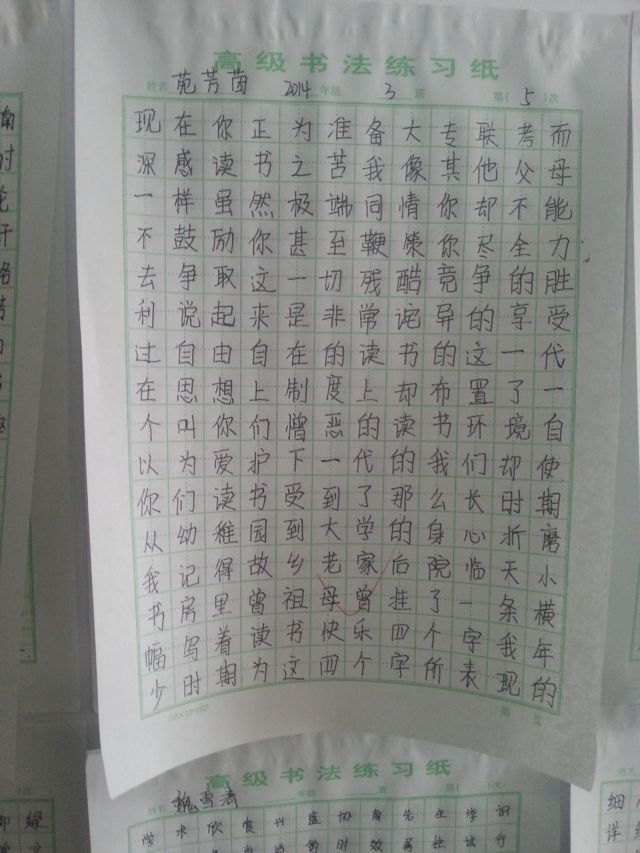 高级书法练习纸
姓名 苑芳茵 2014 年级 3 班 第( 5 )次
现在你正为准备大专联考而
深感读书之苦我像其他父母
一样虽然极端同情你却不能
不鼓励你甚至鞭策你尽全力
去争取这一切残酷竞争的胜
利说起来是非常诧异的享受
过自由自在的读书的这一代
在思想上制度上却布置了一
个叫你们憎恶的读书环境自
以为爱护下一代的我们却使
你们读书受到了那么长时期
从幼稚园到大学的身心折磨
我记得故乡老家后院临天小
书房里曾祖母曾挂了一条横
幅写着读书快乐四个字我年
少时期为这四个字所表现的
(16×12=192)
第 页
高级书法练习纸
姓名 魏雪涛 年级 班 第( )次